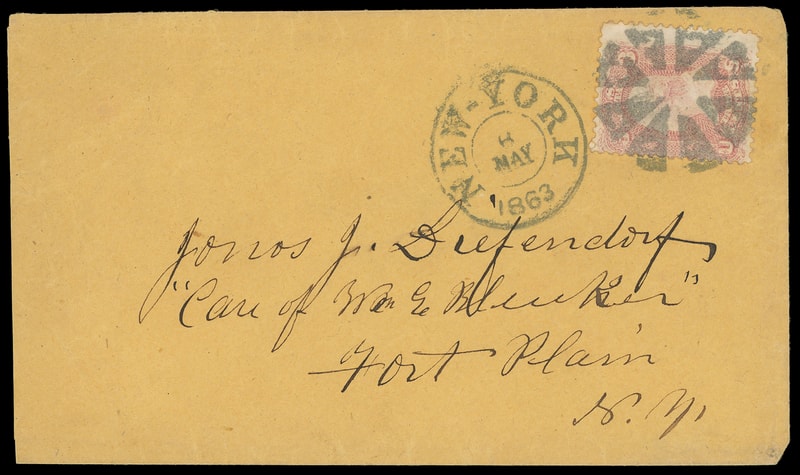 NEW-YORK
8
MAY
1863
Jonas J. Diefendorf
"Care of Wm E Bleecker"
Fort Plain
N. Y.